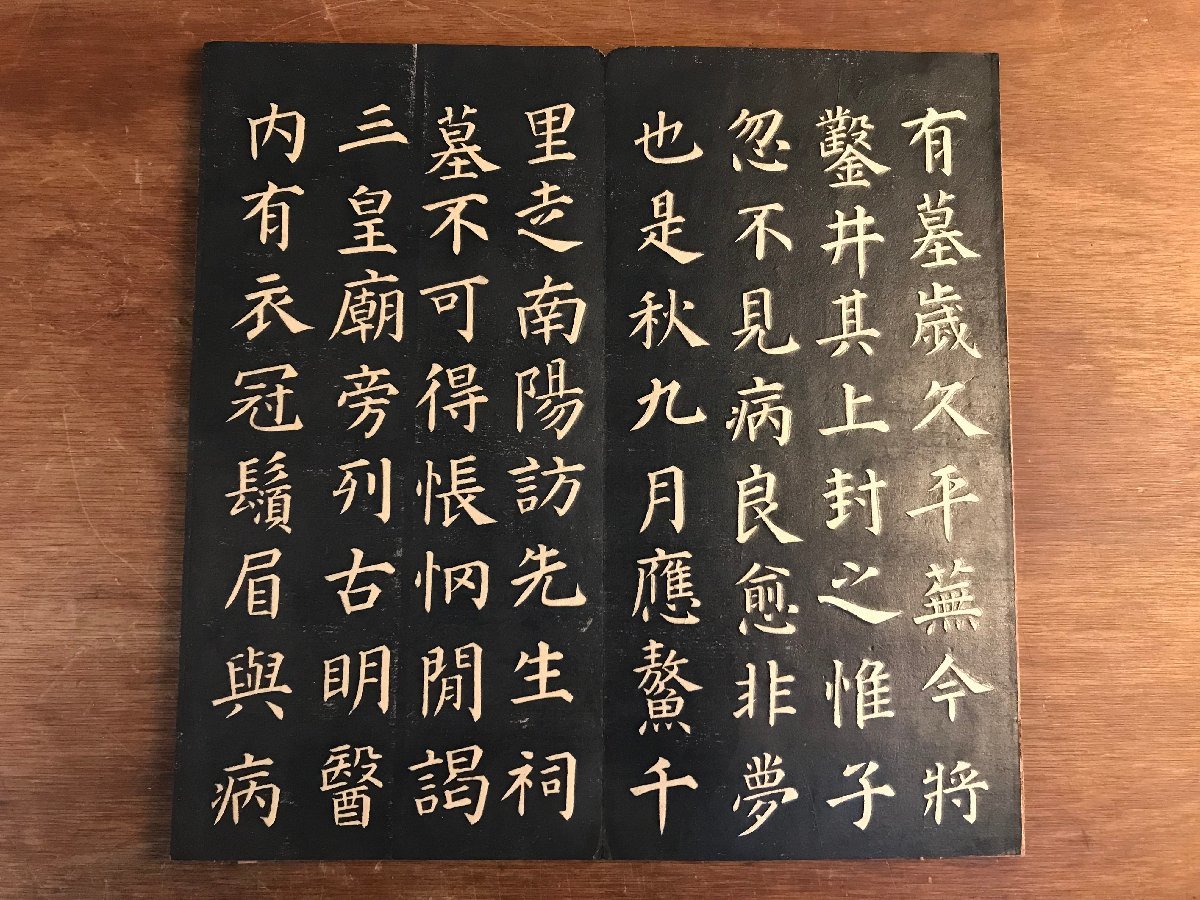 有墓歲久平蕪今將
鑿井其上封之惟子
忽不見病良愈非夢
也是秋九月應鰲千
里走南陽訪先生祠
墓不可得悵惘閒謁
三皇廟旁列古明醫
内有衣冠鬚眉與病